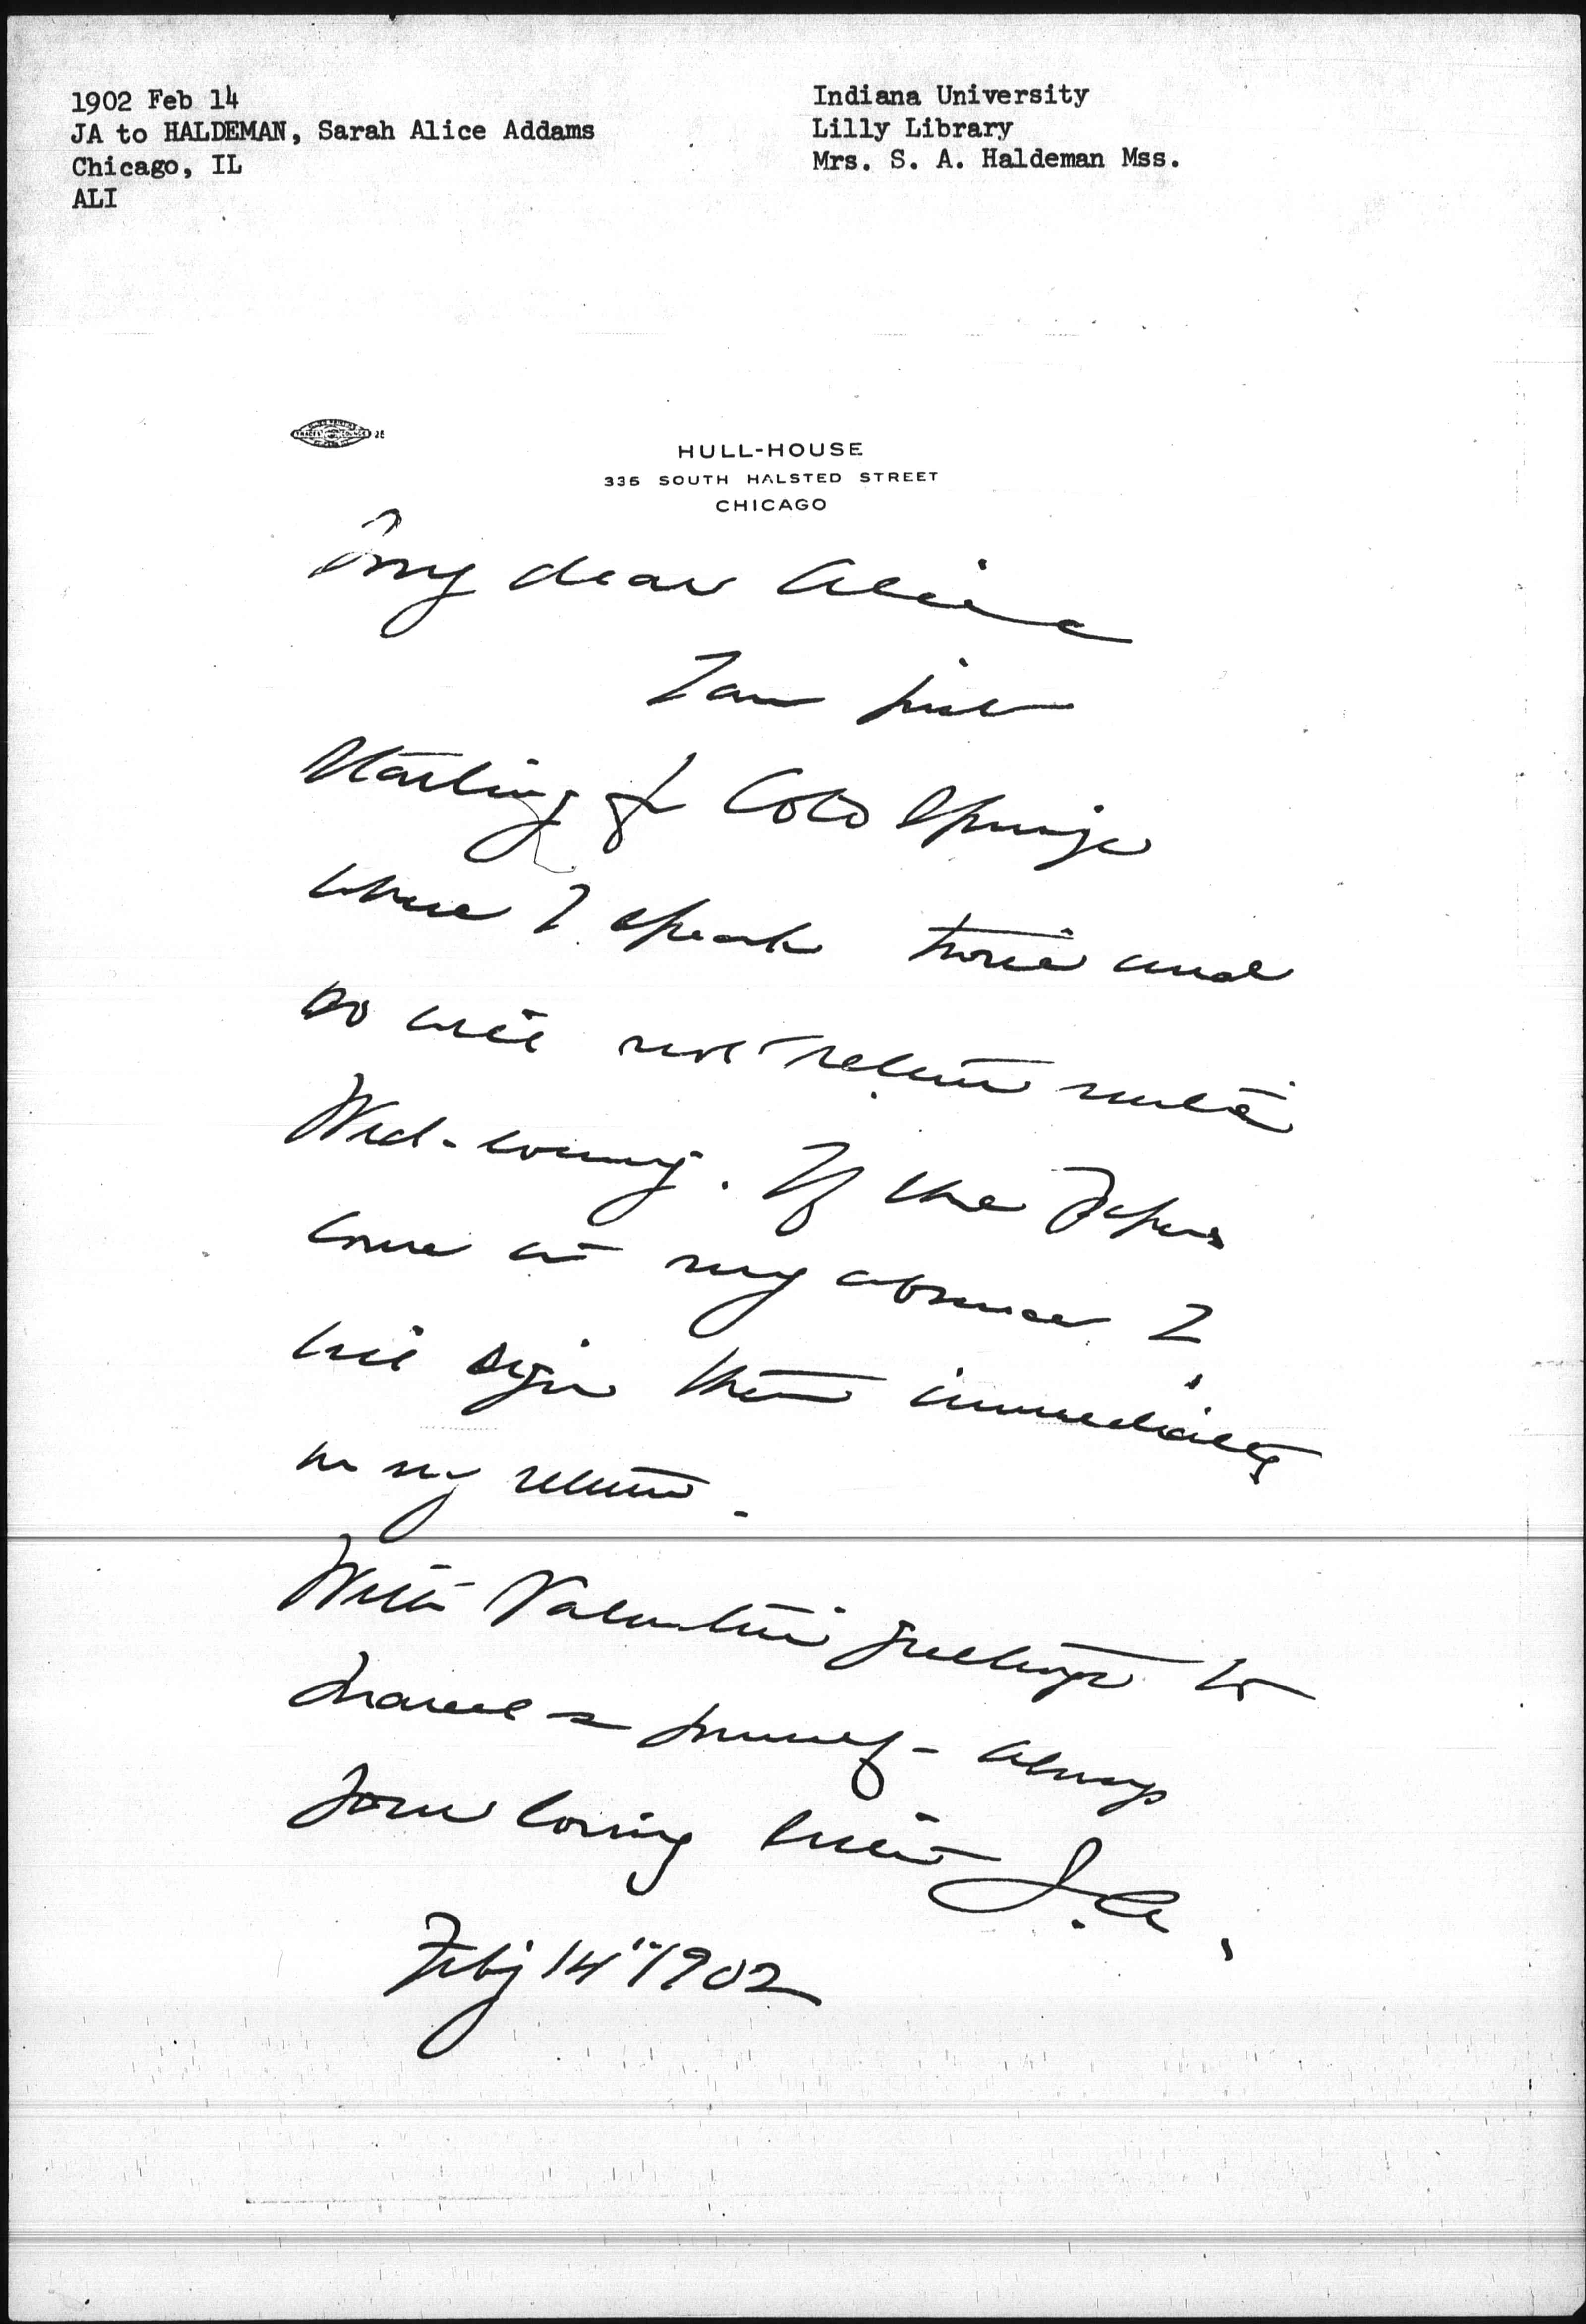 1902 Feb 14
JA to HALDEMAN, Sarah Alice Addams
Chicago, IL
ALI
Indiana University
Lilly Library
Mrs. S. A. Haldeman Mss.
HULL-HOUSE
335 SOUTH HALSTED STREET
CHICAGO
My dear Alice
I am just
starting for Colo Springs
where I speak twice and
so will not return until
Wed- evening. If the papers
come in my absence I
will sign them immediately
on my return.
With Valentine greetings to
Marcet & yourself - always
Your loving sister J.A.
Feby 14" 1902